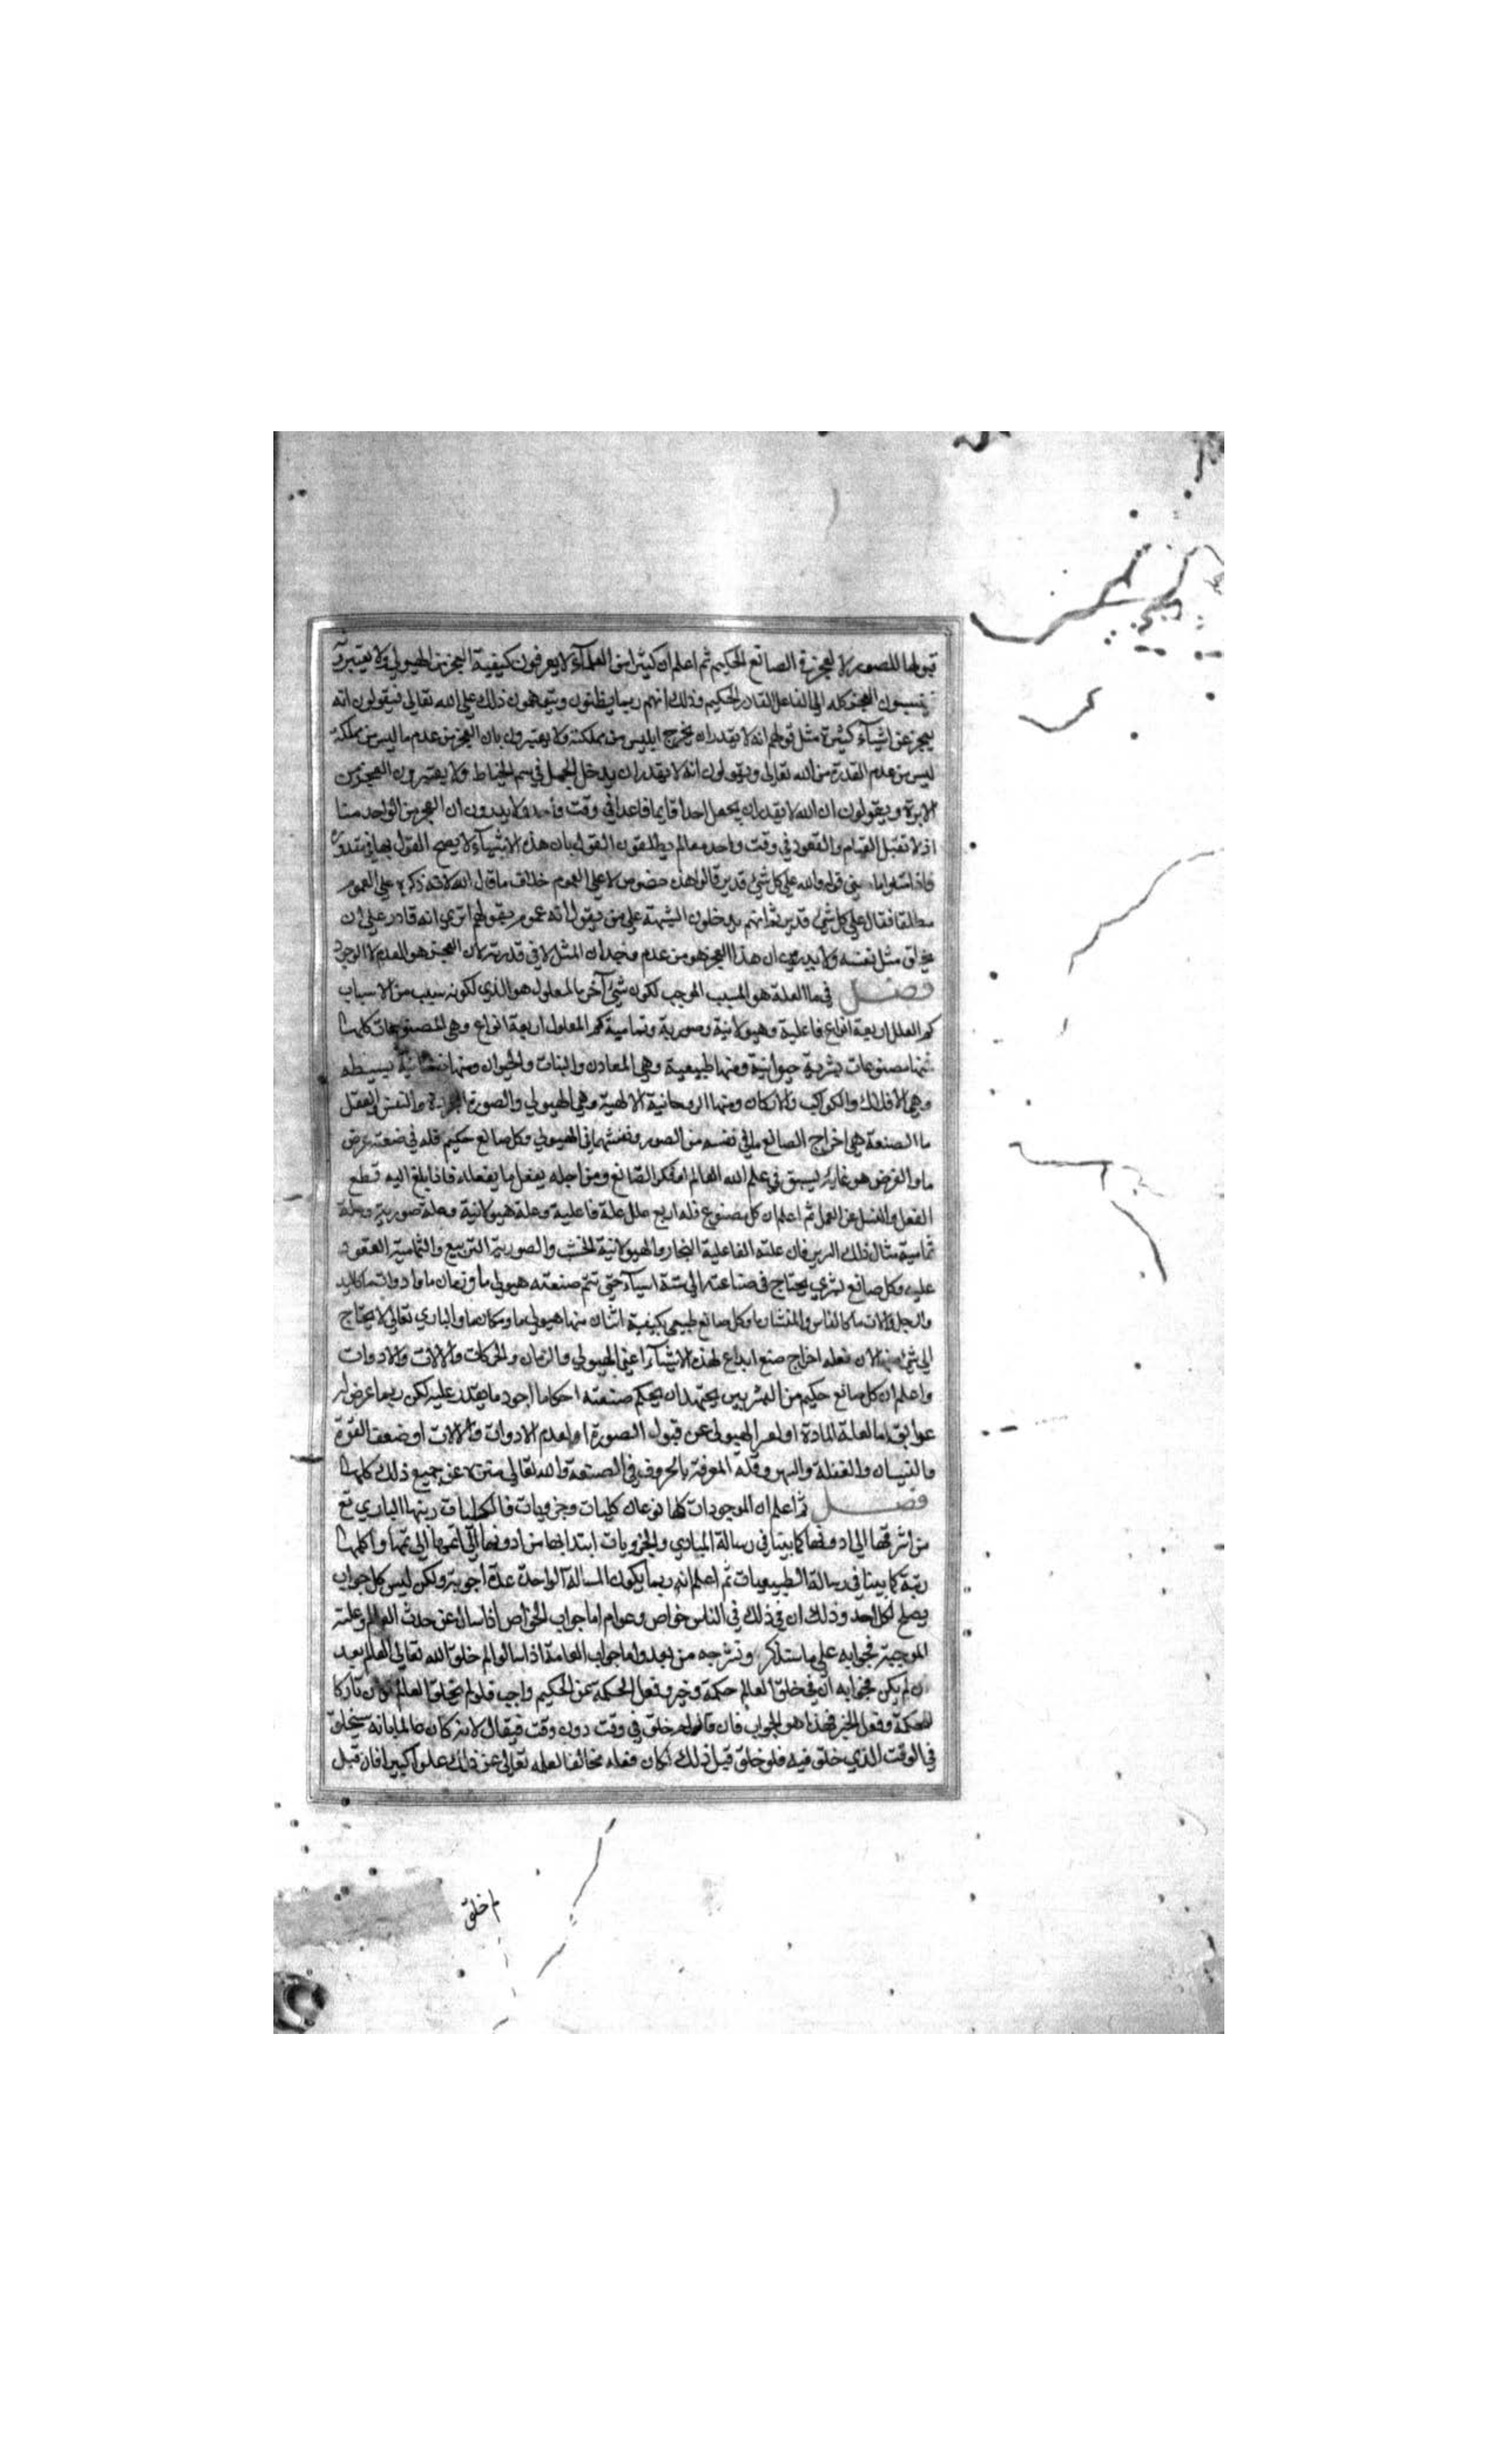 قبولها للصور لا لعجز في الصانع الحكيم ثم اعلم ان كثيرا من العلمآء لا يعرفون كيفية العجز من الهيولي ولا يعتبرون
ينسبون العجز كله الى الفاعل القادر الحكيم وذلك انهم ربما يظنون ويتوهمون ذلك على الله تعالى فيقولون انه
يعجز عن اشيآء كثيرة مثل قولهم انه لا يقدر ان يخرج ابليس من مملكته ولا يعتبرون بان العجز من عدم ما ليس من مملكته
ليس من عدم القدرة من الله تعالى ويقولون انه لا يقدر ان يدخل الجمل في سم الخياط ولا يعتبرون العجز من
الابرة ويقولون ان الله لا يقدر ان يجعل احدا قايما قاعدا في وقت واحد ولا يدرون ان العجز من الواحد منا
اذ لا تقبل القيام والقعود في وقت واحد معا لم يطلقون القول بان هذه الاشيآء لا يصح القول بها في مقدوره
فاذا سئلوا ما معني قوله والله على كل شئ قدير قالوا هذه خصوص لا على العموم خلاف ما قال الله لانه ذكره على العموم
مطلقا فقال على كل شئ قدير ثم انهم يدخلون الشبهة على من يقول انه عموم بقولهم اترى انه قادر على ان
يخلق مثل نفسه ولا يدرون ان هذا العجز هو من عدم وجدان المثل لا في قدرته لان العجز هو العدم لا الوجود
فصل في ما العلة هو السبب الموجب لكون شئ آخر ما المعلول هو الذي لكونه سبب من الاسباب
كم العلل اربعة انواع فاعلية وهيولانية وصورية وتمامية كم المعلول اربعة انواع وهي المصنوعات كلها
فمنها مصنوعات بشرية حيوانية ومنها طبيعية وهي المعادن والنبات والحيوان ومنها نفسانية بسيطه
وهي الافلاك والكواكب والاركان ومنها الروحانية الالهية وهي الهيولي والصورة المجردة والنفس والعقل
ما الصنعة هي اخراج الصانع ما في نفسه من الصور ونقشها في الهيولي وكل صانع حكيم فله في صنعته غرض
ما والغرض هو غاية يسبق في علم الله العالم او فكر الصانع ومن اجله يفعل ما يفعله فاذا بلغ اليه قطع
الفعل وامسك عن العمل ثم اعلم ان كل مصنوع فله اربع علل علة فاعلية وعلة هيولانية وعلة صورية وعلة
تمامية مثال ذلك السرير فان علته الفاعلية النجار والهيولانية الخشب والصورية التربيع والتمامية القعود
عليه وكل صانع بشري يحتاج في صناعته الى ستة اشيآء حتى تتم صنعته هيولي ما وزمان ما وادوات ما كاليد
والرجل والات ما كالفاس والمنشار وكل صانع طبيعي يكفيه اثنان منها هيولي ما ومكان ما والباري تعالى لا يحتاج
الى شئ منها لان فعله اخراج صنع ابداع لهذه الاشيآء اعني الهيولي والزمان والحركات والالات والادوات
واعلم ان كل صانع حكيم من البشريين يجتهد ان يحكم صنعته احكاما اجود ما يقدر عليه لكن ربما عرض له
عوايق اما لعلة المادة او لعسر الهيولي عن قبول الصورة او لعدم الادوات والالات او ضعف القوة
والنسيان والغفلة والسهو وقلة المعرفة بالحروف في الصنعة والله تعالى منزه عن جميع ذلك كلها
فصل ثم اعلم ان الموجودات كلها نوعان كليات وجزويات فالكليات رتبها الباري تع
من اشرفها الى ادونها كما بينا في رسالة المبادي والجزويات ابتداها من ادونها الى اتمها الى تمها واكملها
رتبة كما بينا في رسالة الطبيعيات ثم اعلم انه ربما يكون المسالة الواحدة عدة اجوبة ولكن ليس كل جواب
يصلح لكل احد وذلك ان في ذلك في الناس خواص وعوام اما جواب الخواص اذا سال عن حدث العالم وعلته
الموجبة فجوابه على ما سنذكر ونشرحه من بعد واما جواب العامة اذا سالوا لم خلق الله تعالى العالم بعد
ان لم يكن فجوابه ان في خلق العالم حكمة وخير وفعل الحكمة عن الحكيم واجب فلو لم يخلق العالم لكان تاركا
للحكمة وفعل الخير فهذا هو الجواب فان قالوا لم خلق في وقت دون وقت فيقال لانه كان عالما بانه سيخلق
في الوقت الذي خلق فيه فلو خلق قبل ذلك لكان فعله مخالفا لعلمه تعالى عن ذلك علوا كبيرا فان قيل
لم خلق